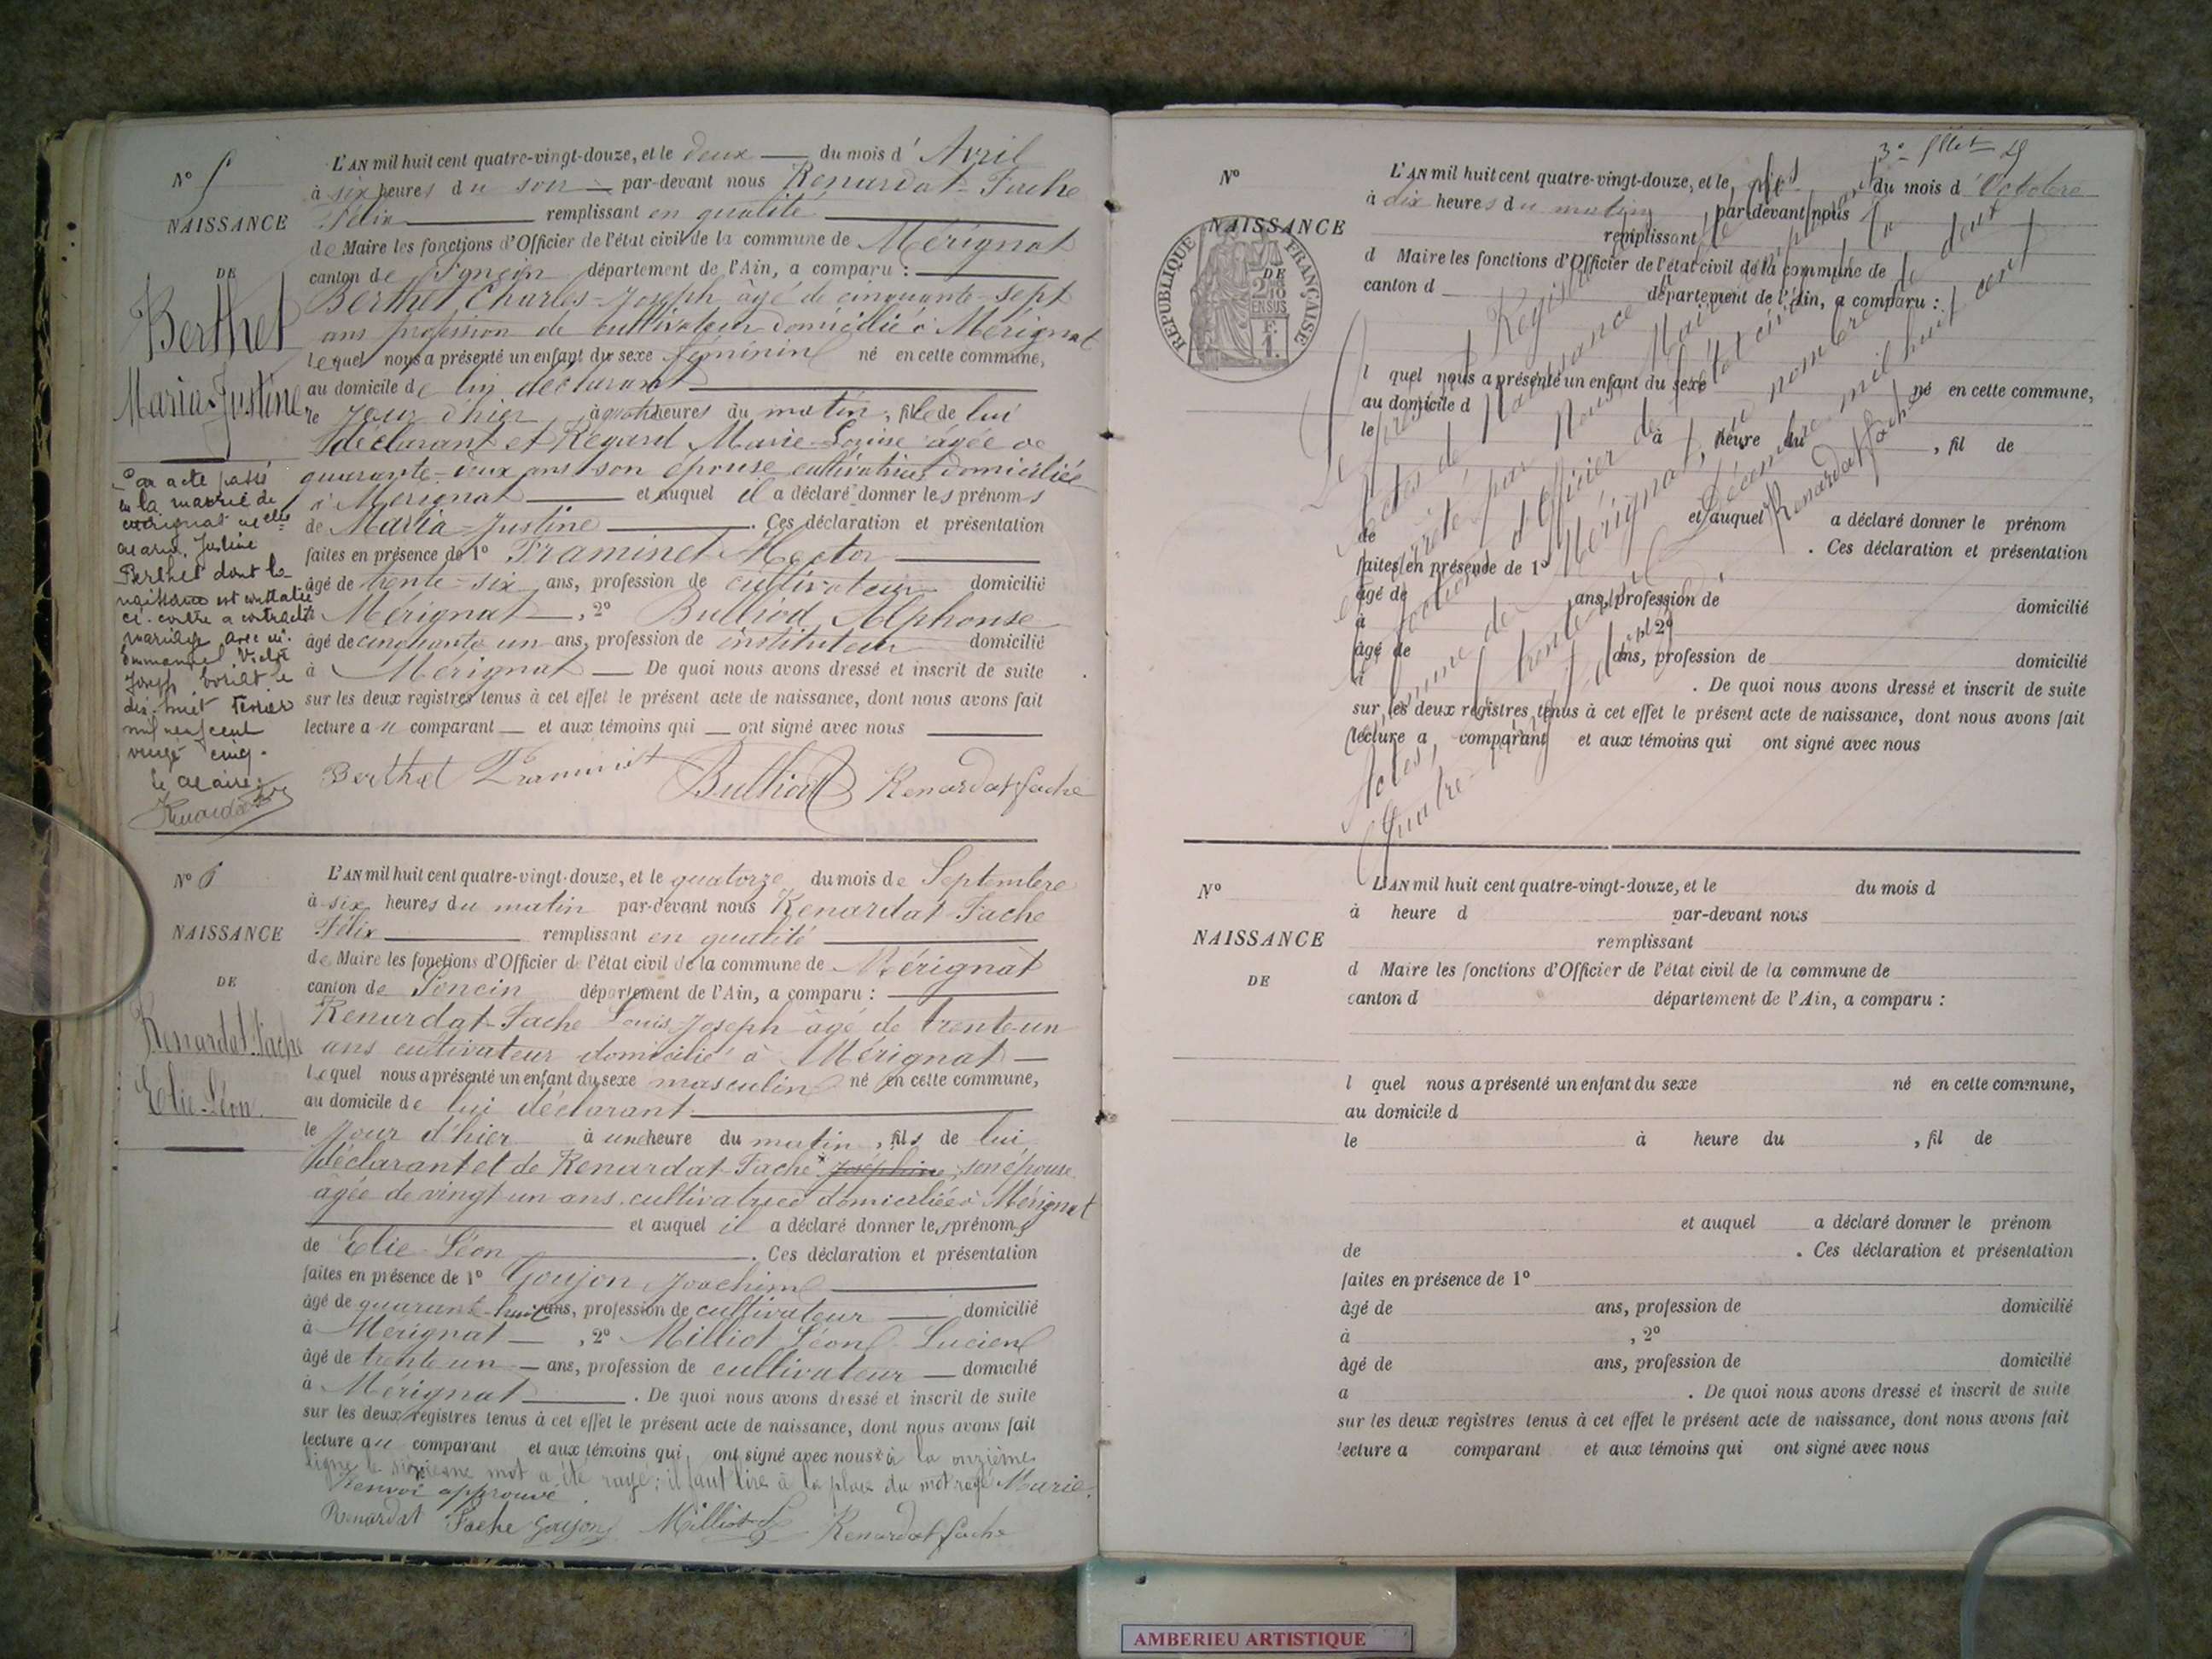 N° 5
NAISSANCE
DE
Berthet
Maria-Justine
Par acte passé
en la mairie de
Mérignat
Maria Justine
Berthet dont la
naissance est constatée
ci-contre a contracté
mariage avec
Emmanuel Victor
Joseph le
dix-huit février
mil neuf cent
vingt cinq.
le Maire
L'AN mil huit cent quatre-vingt-douze, et le deux du mois d'Avril
à six heures du soir par-devant nous Renardat-Fache
Félix remplissant en qualité
de Maire les fonctions d'Officier de l'état civil de la commune de Mérignat
canton de Poncin département de l'Ain, a comparu :
Berthet Charles-Joseph âgé de cinquante-sept
ans profession de cultivateur domicilié à Mérignat
lequel nous a présenté un enfant du sexe féminin né en cette commune,
au domicile de lui déclarant
le jour d'hier à quatre heures du matin, fille de lui
déclarant et Régard Marie-Louise âgée de
quarante-deux ans son épouse cultivatrice domiciliée
à Mérignat et auquel il a déclaré donner les prénoms
de Maria-Justine. Ces déclaration et présentation
faites en présence de 1° Framinet Hector
âgé de trente-six ans, profession de cultivateur domicilié
à Mérignat, 2° Bulliod Alphonse
âgé de cinquante un ans, profession de instituteur domicilié
à Mérignat De quoi nous avons dressé et inscrit de suite
sur les deux registres tenus à cet effet le présent acte de naissance, dont nous avons fait
lecture au comparant et aux témoins qui ont signé avec nous
Berthet Framinet Bulliod Renardat fache
N° 6
NAISSANCE
DE
Renardat-Fache
Elie-Léon
L'AN mil huit cent quatre-vingt-douze, et le quatorze du mois de Septembre
à six heures du matin par-devant nous Renardat-Fache
Félix remplissant en qualité
de Maire les fonctions d'Officier de l'état civil de la commune de Mérignat
canton de Poncin département de l'Ain, a comparu :
Renardat-Fache Louis-Joseph âgé de trente-un
ans cultivateur domicilié à Mérignat
lequel nous a présenté un enfant du sexe masculin né en cette commune,
au domicile de lui déclarant
le jour d'hier à une heure du matin, fils de lui
déclarant et de Renardat-Fache Joséphine, son épouse
âgée de vingt un ans cultivatrice domiciliée à Mérignat
et auquel il a déclaré donner les prénoms
de Elie-Léon. Ces déclaration et présentation
faites en présence de 1° Goujon Joachim
âgé de quarante-huit ans, profession de cultivateur domicilié
à Mérignat, 2° Milliot Léon-Lucien
âgé de trente un ans, profession de cultivateur domicilié
à Mérignat. De quoi nous avons dressé et inscrit de suite
sur les deux registres tenus à cet effet le présent acte de naissance, dont nous avons fait
lecture au comparant et aux témoins qui ont signé avec nous à la onzième
ligne le sixième mot a été rayé; il faut lire à la place du mot rayé Marie.
Renvoi approuvé.
Renardat Fache Goujon Milliot L Renardat fache
N°
NAISSANCE
RÉPUBLIQUE FRANÇAISE
DE
2/10 EN SUS
F.
1.
L'AN mil huit cent quatre-vingt-douze, et le du mois d'Octobre
à dix heures du matin par-devant nous
remplissant
d Maire les fonctions d'Officier de l'état civil de la commune de
canton d département de l'Ain, a comparu :
l quel nous a présenté un enfant du sexe né en cette commune,
au domicile d
le à heure du , fil de
et auquel a déclaré donner le prénom
de . Ces déclaration et présentation
faites en présence de 1°
âgé de ans, profession de domicilié
à , 2°
âgé de ans, profession de domicilié
à . De quoi nous avons dressé et inscrit de suite
sur les deux registres tenus à cet effet le présent acte de naissance, dont nous avons fait
lecture a comparant et aux témoins qui ont signé avec nous
Le présent Registre
actes de Naissance
arrêté par Nous, Maire
fonctions d'Officier de l'état civil de
commune de Mérignat, au nombre de
Décembre mil huit cent
Quatre
Renardat fache
N°
NAISSANCE
DE
L'AN mil huit cent quatre-vingt-douze, et le du mois d
à heure d par-devant nous
remplissant
d Maire les fonctions d'Officier de l'état civil de la commune de
canton d département de l'Ain, a comparu :
l quel nous a présenté un enfant du sexe né en cette commune,
au domicile d
le à heure du , fil de
et auquel a déclaré donner le prénom
de . Ces déclaration et présentation
faites en présence de 1°
âgé de ans, profession de domicilié
à , 2°
âgé de ans, profession de domicilié
a . De quoi nous avons dressé et inscrit de suite
sur les deux registres tenus à cet effet le présent acte de naissance, dont nous avons fait
lecture a comparant et aux témoins qui ont signé avec nous
AMBERIEU ARTISTIQUE